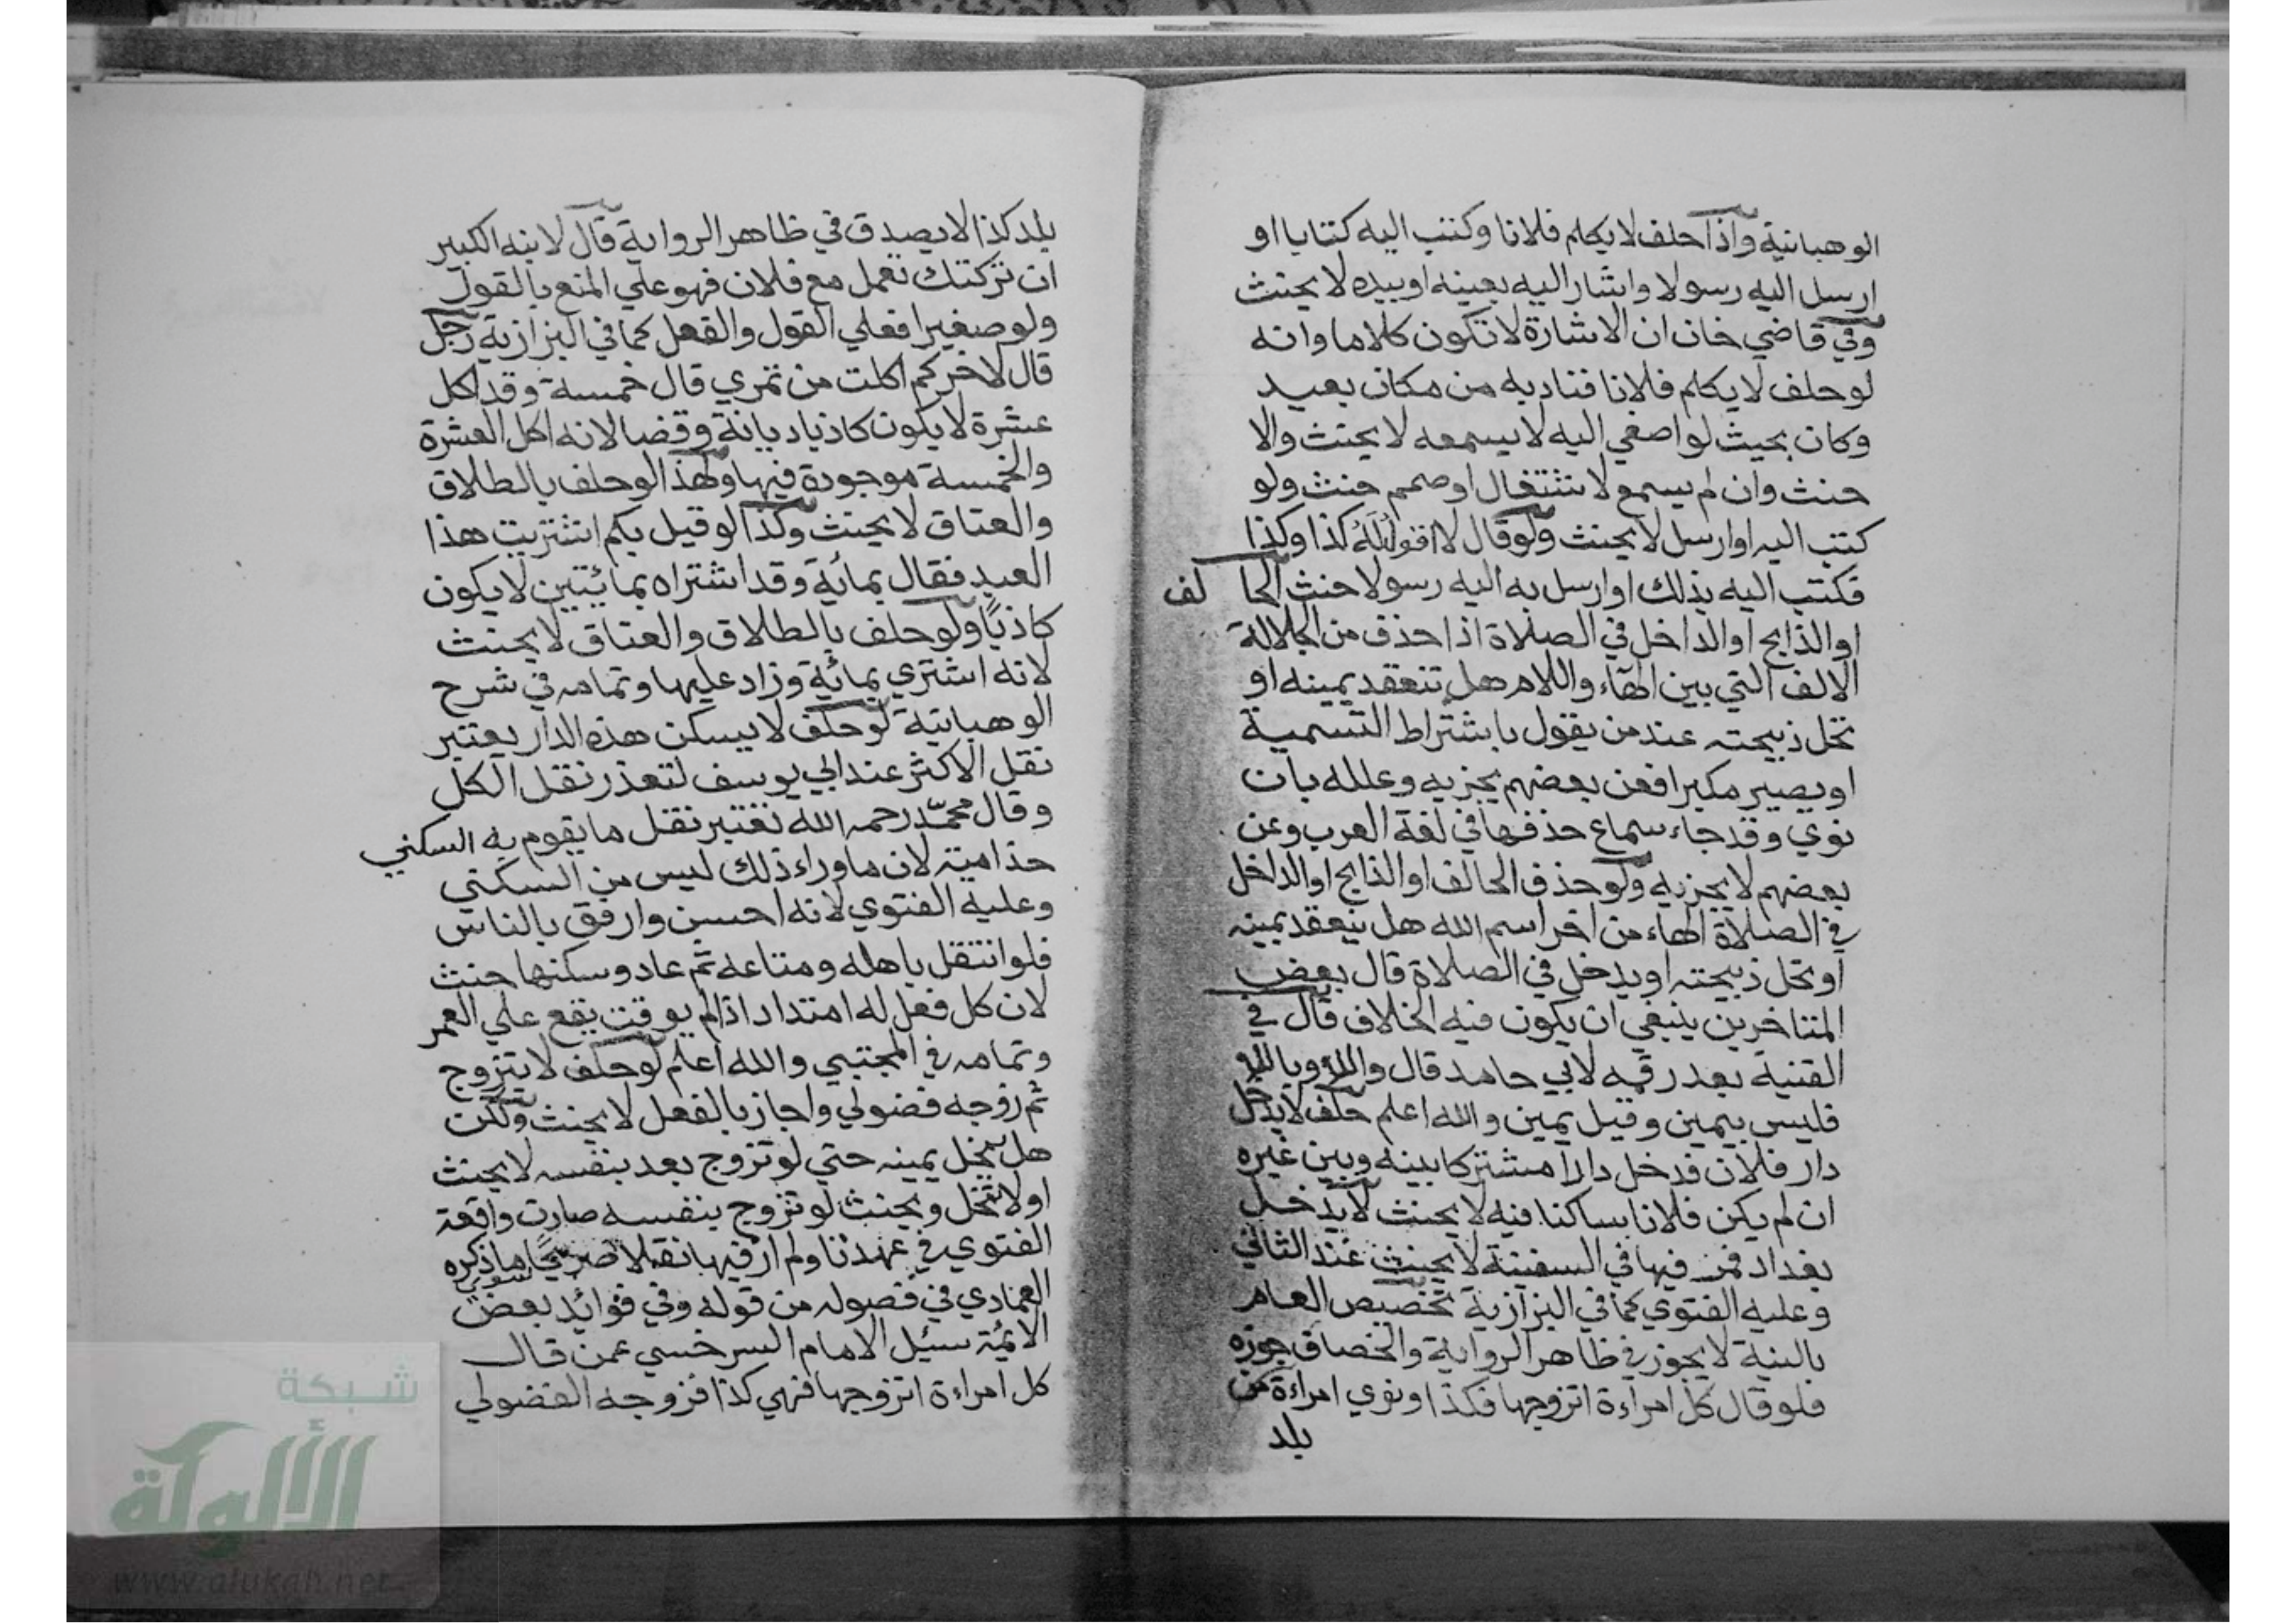 الوهبانية واذا حلف لا يكلم فلانا وكتب اليه كتابا او
ارسل اليه رسولا واشار اليه بعينه او بيده لا يحنث
وفي قاضي خان ان الاشارة لا تكون كلاما وانه
لو حلف لا يكلم فلانا فناديه من مكان بعيد
وكان بحيث لو اصغي اليه لا يسمعه لا يحنث والا
حنث وان لم يسمع لاشتغال او صمم حنث ولو
كتب اليه او ارسل لا يحنث ولو قال لا اقول له كذا وكذا
فكتب اليه بذلك او ارسل به اليه رسولا حنث الحالف
او الذابح او الداخل في الصلاة اذا حذف من الجلالة
الالف التي بين الهاء واللام هل تنعقد يمينه او
تحل ذبيحته عند من يقول باشتراط التسمية
او يصير مكبرا فعن بعضهم يجزيه وعلله بان
نوي وقد جاء سماع حذفها في لغة العرب وعن
بعضهم لا يجزيه ولو حذف الحالف او الذابح او الداخل
في الصلاة الهاء من اخر اسم الله هل ينعقد يمينه
او تحل ذبيحته او يدخل في الصلاة قال بعض
المتاخرين ينبغي ان يكون فيه الخلاف قال في
القنية بعد رقمه لابي حامد قال واللهو وباللهو
فليس بيمين وقيل يمين والله اعلم حلف لا يدخل
دار فلان فدخل دارا مشتركا بينه وبين غيره
ان لم يكن فلانا ساكنا فيه لا يحنث لا يدخل
بغداد فمر فيها في السفينة لا يحنث عند الثاني
وعليه الفتوي كما في البزازية تخصيص العام
بالنية لا يجوز في ظاهر الرواية والخصاف جوزه
فلو قال كل امراءة اتزوجها فكذا ونوي امراءة من
بلد
بلد كذا لا يصدق في ظاهر الرواية قال لابنه الكبير
ان تركتك تعمل مع فلان فهو علي المنع بالقول
ولو صغيرا فعلي القول والفعل كما في البزازية رجل
قال لاخر كم اكلت من تمري قال خمسة وقد اكل
عشرة لا يكون كاذبا ديانة وقضا لانه اكل العشرة
والخمسة موجودة فيها ولهذا لو حلف بالطلاق
والعتاق لا يحنث وكذا لو قيل بكم اشتريت هذا
العبد فقال بمائة وقد اشتراه بمائيتين لا يكون
كاذبًا ولو حلف بالطلاق والعتاق لا يحنث
لانه اشتري بمائة وزاد عليها وتمامه في شرح
الوهبانية لو حلف لا يسكن هذه الدار يعتبر
نقل الاكثر عند ابي يوسف لتعذر نقل الكل
وقال محمّد رحمه الله تعتبر نقل ما يقوم به السكني
لان ما وراء ذلك ليس من السكني
وعليه الفتوي لانه احسن وارفق بالناس
فلو انتقل باهله ومتاعه ثم عاد وسكنها حنث
لان كل فعل له امتداد اذا لم يوقت يقع علي العمر
وتمامه في المجتبي والله اعلم لو حلف لا يتزوج
ثم زوجه فضولي واجاز بالفعل لا يحنث ولكن
هل تنحل يمينه حتي لو تزوج بعد بنفسه لا يحنث
او لا تنحل ويحنث لو تزوج بنفسه صارت واقعة
الفتوي في عهدنا ولم ار فيها نقلا صريحًا سوي ما ذكره
العمادي في فصوله من قوله وفي فوائد بعض
الائمة سئيل الامام السرخسي عمن قال
كل امراءة اتزوجها فهي كذا فزوجه الفضولي
شبكة
الألوكة
www.alukah.net